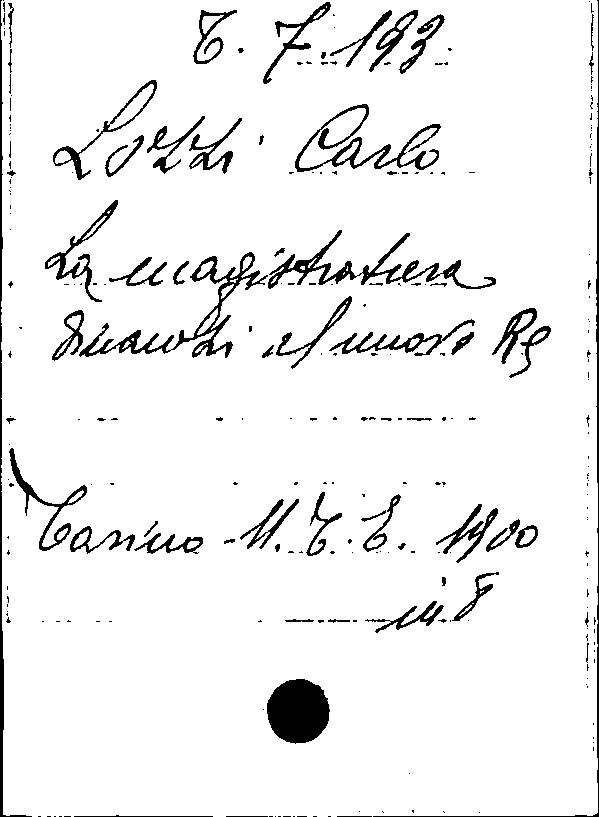 T. 7. 193
Lozzi Carlo
La magistratura
dinanzi al nuovo Re
Torino - U. T. E. 1900
in 8